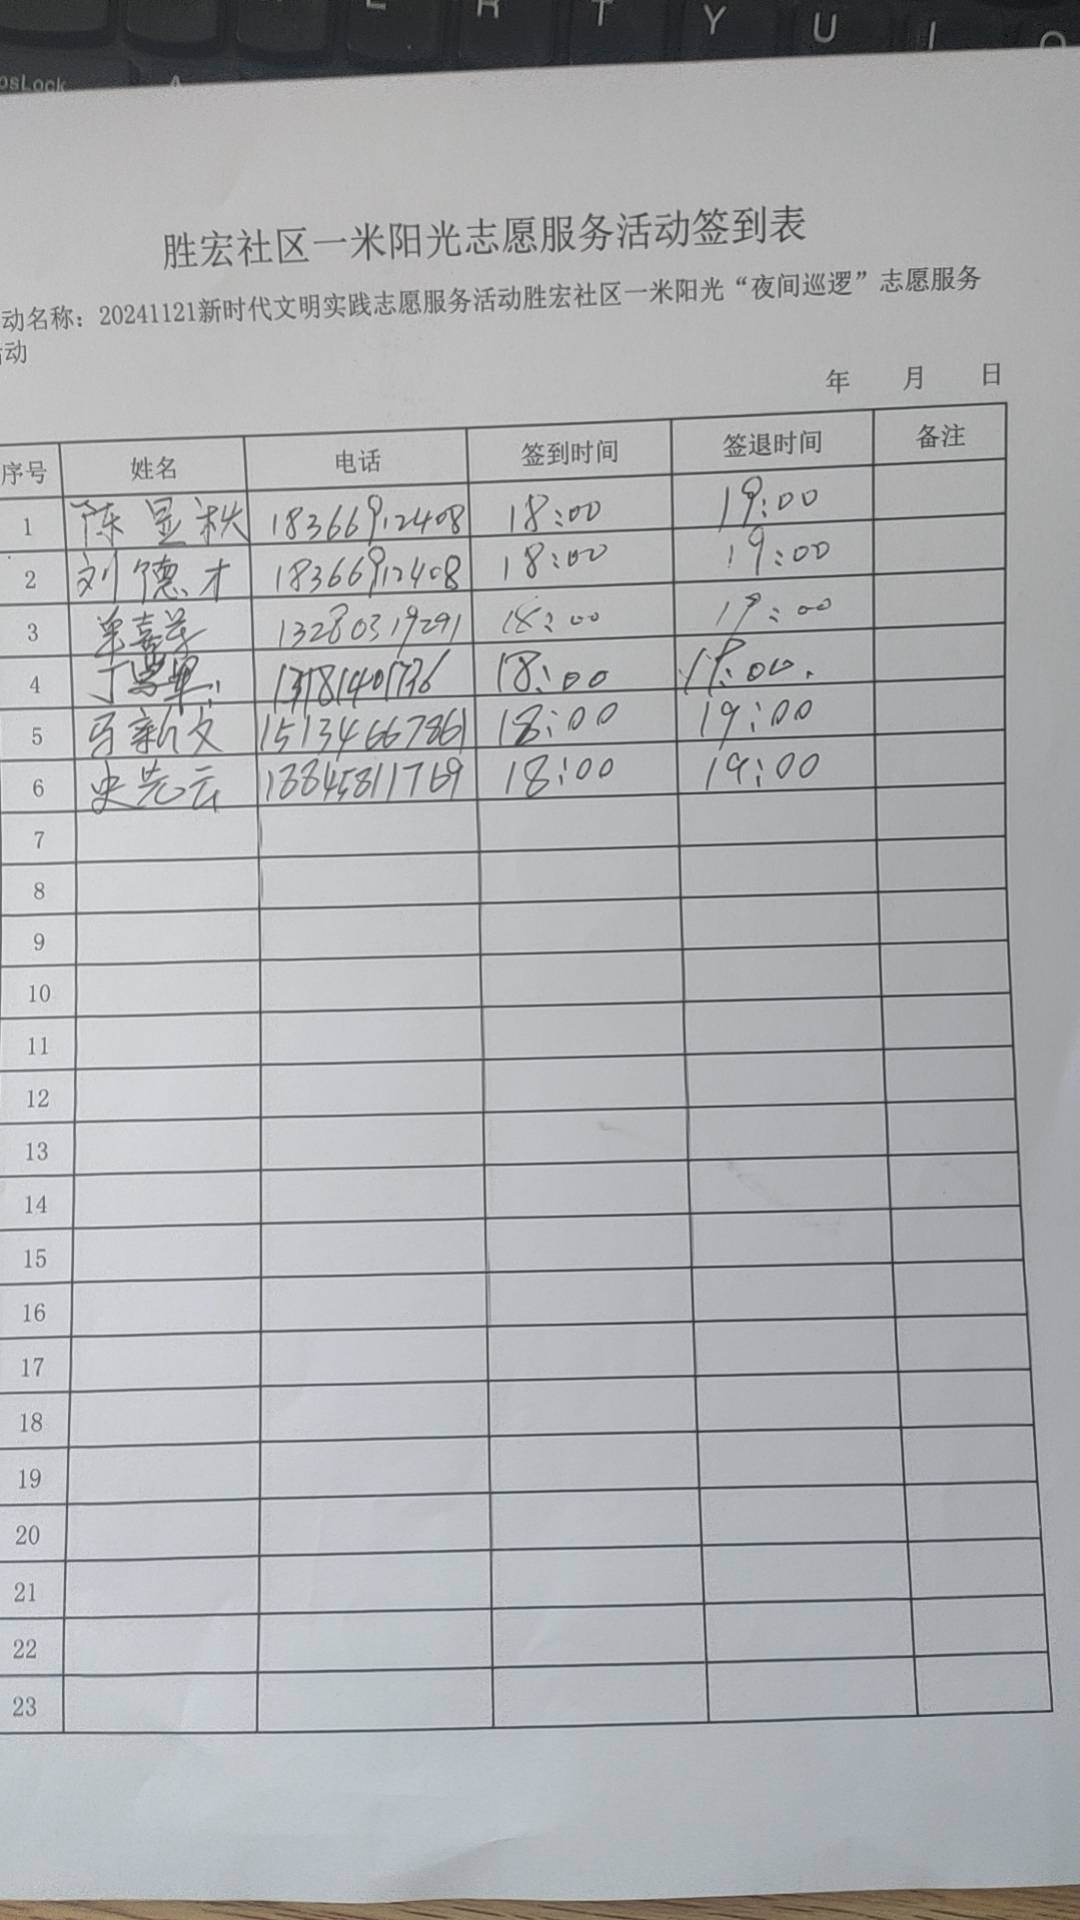 E R T Y U I O
psLock A
胜宏社区一米阳光志愿服务活动签到表
动名称：20241121新时代文明实践志愿服务活动胜宏社区一米阳光“夜间巡逻”志愿服务
活动
年 月 日
序号 姓名 电话 签到时间 签退时间 备注
1 陈显秋 18366912408 18:00 19:00
2 刘德才 18366912408 18:00 19:00
3 13280319291 18:00 19:00
4 13781401736 18:00 19:00.
5 新文 15134667861 18:00 19:00
6 史先云 13845811769 18:00 19:00
7
8
9
10
11
12
13
14
15
16
17
18
19
20
21
22
23